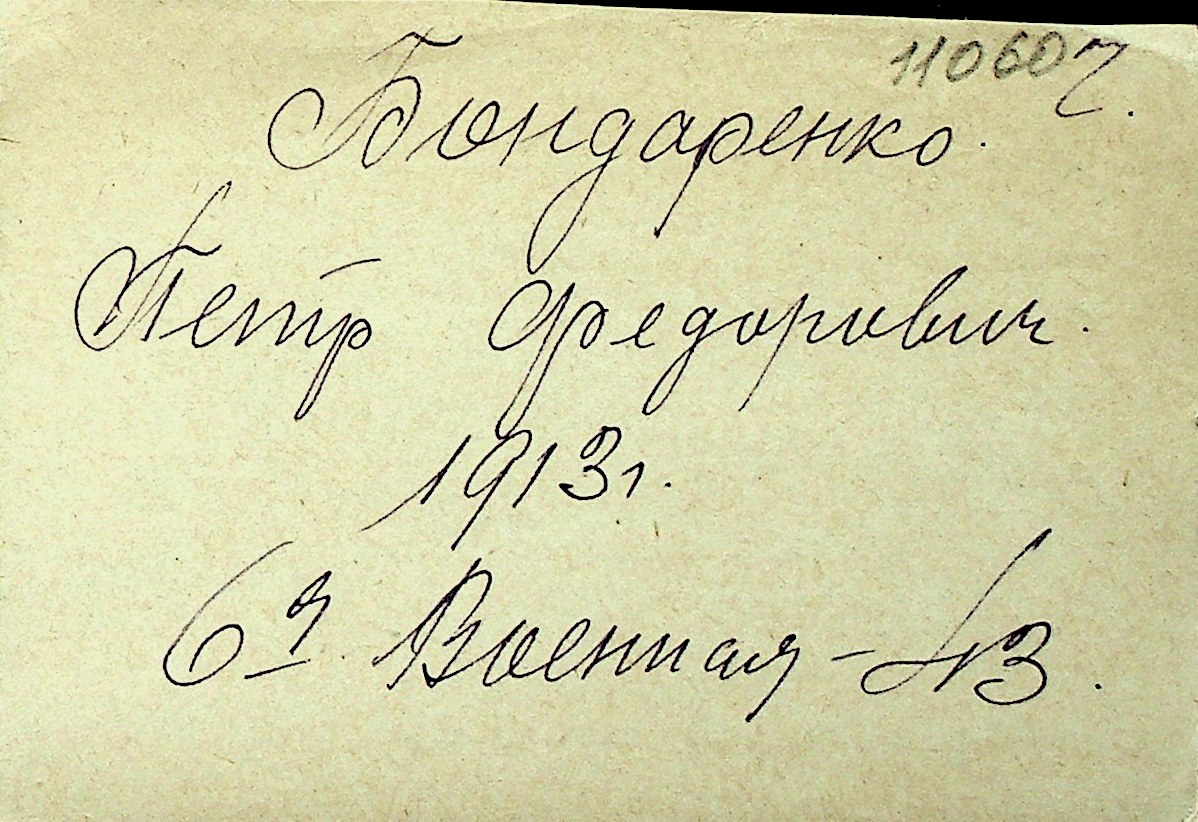 110607.
Бондаренко.
Петр Федорович.
1913г.
6я Военная - 43.